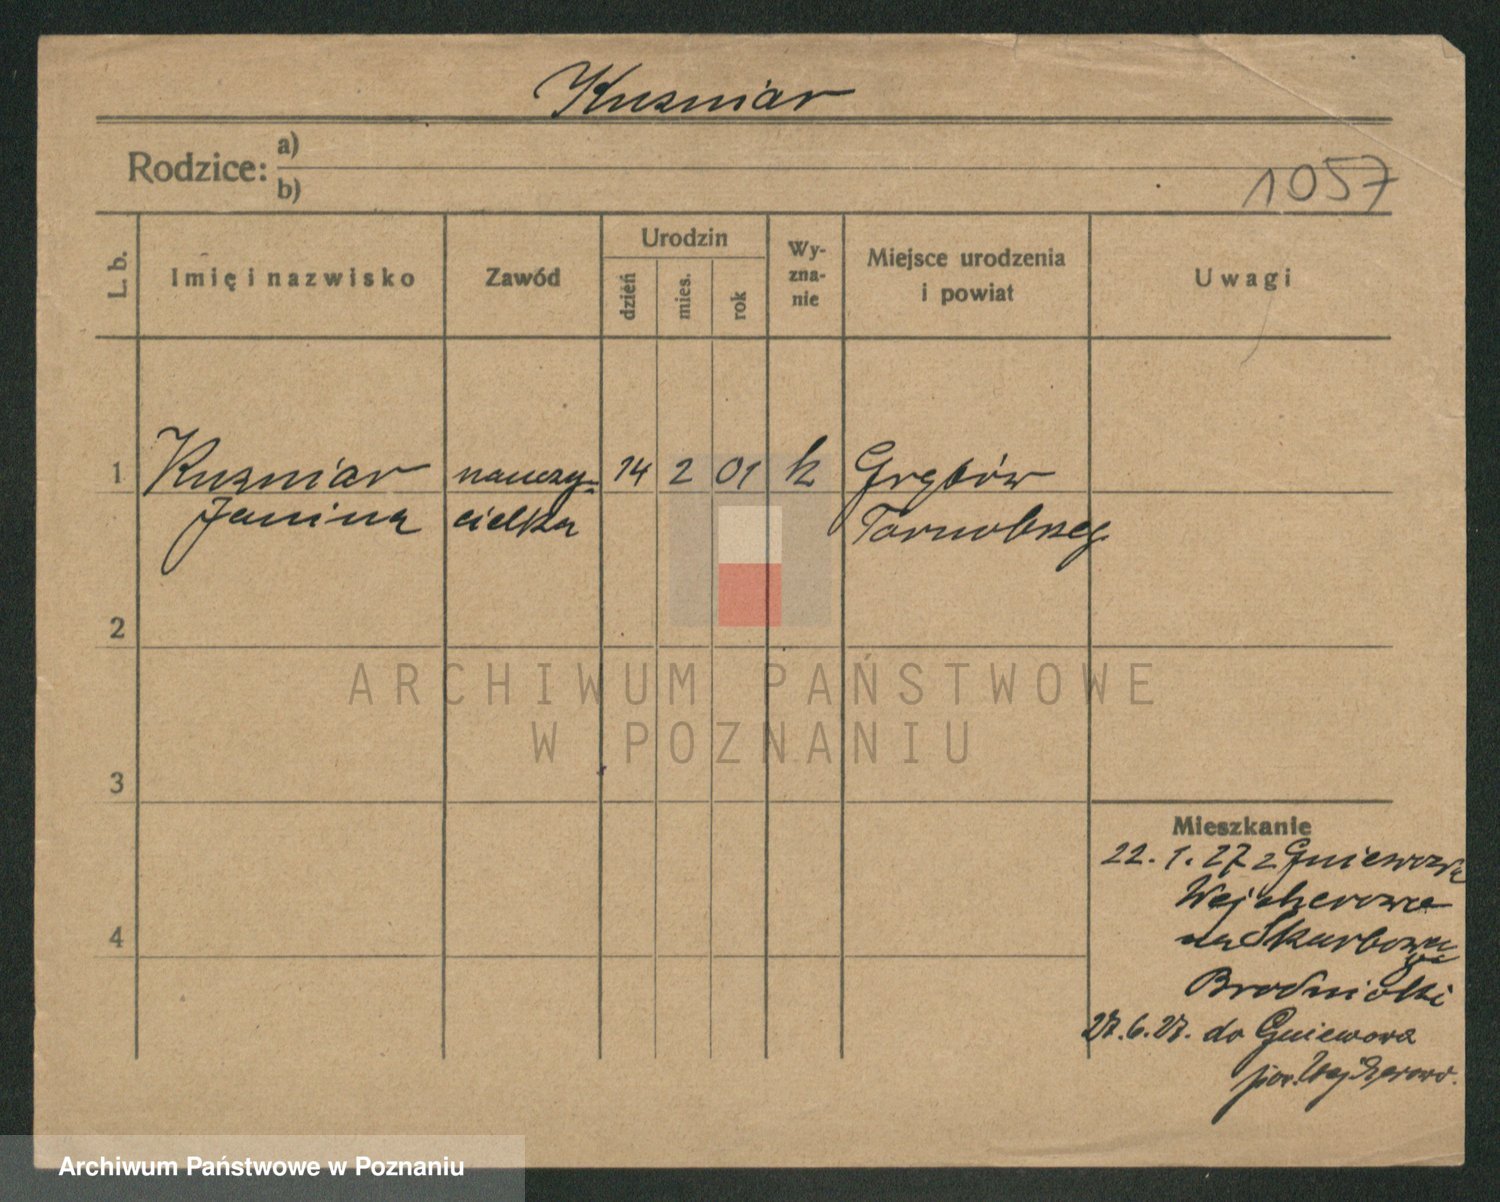 Kuzniar
Rodzice: a)
b)
1057
L. b.
Imię i nazwisko
Zawód
Urodzin
dzień
mies.
rok
Wy-
zna-
nie
Miejsce urodzenia
i powiat
Uwagi
1 Kuzniar nauczy- 14 2 01 k Grębów
Janina cielka Tarnobrzeg
2
3
4
Mieszkanie
22. 1. 27 z Gniewowa
Wejherowa
na Skarbowa
Brodnicki
27.6.27. do Gniewowa
pow. Wejherowo.
ARCHIWUM PAŃSTWOWE
W POZNANIU
Archiwum Państwowe w Poznaniu